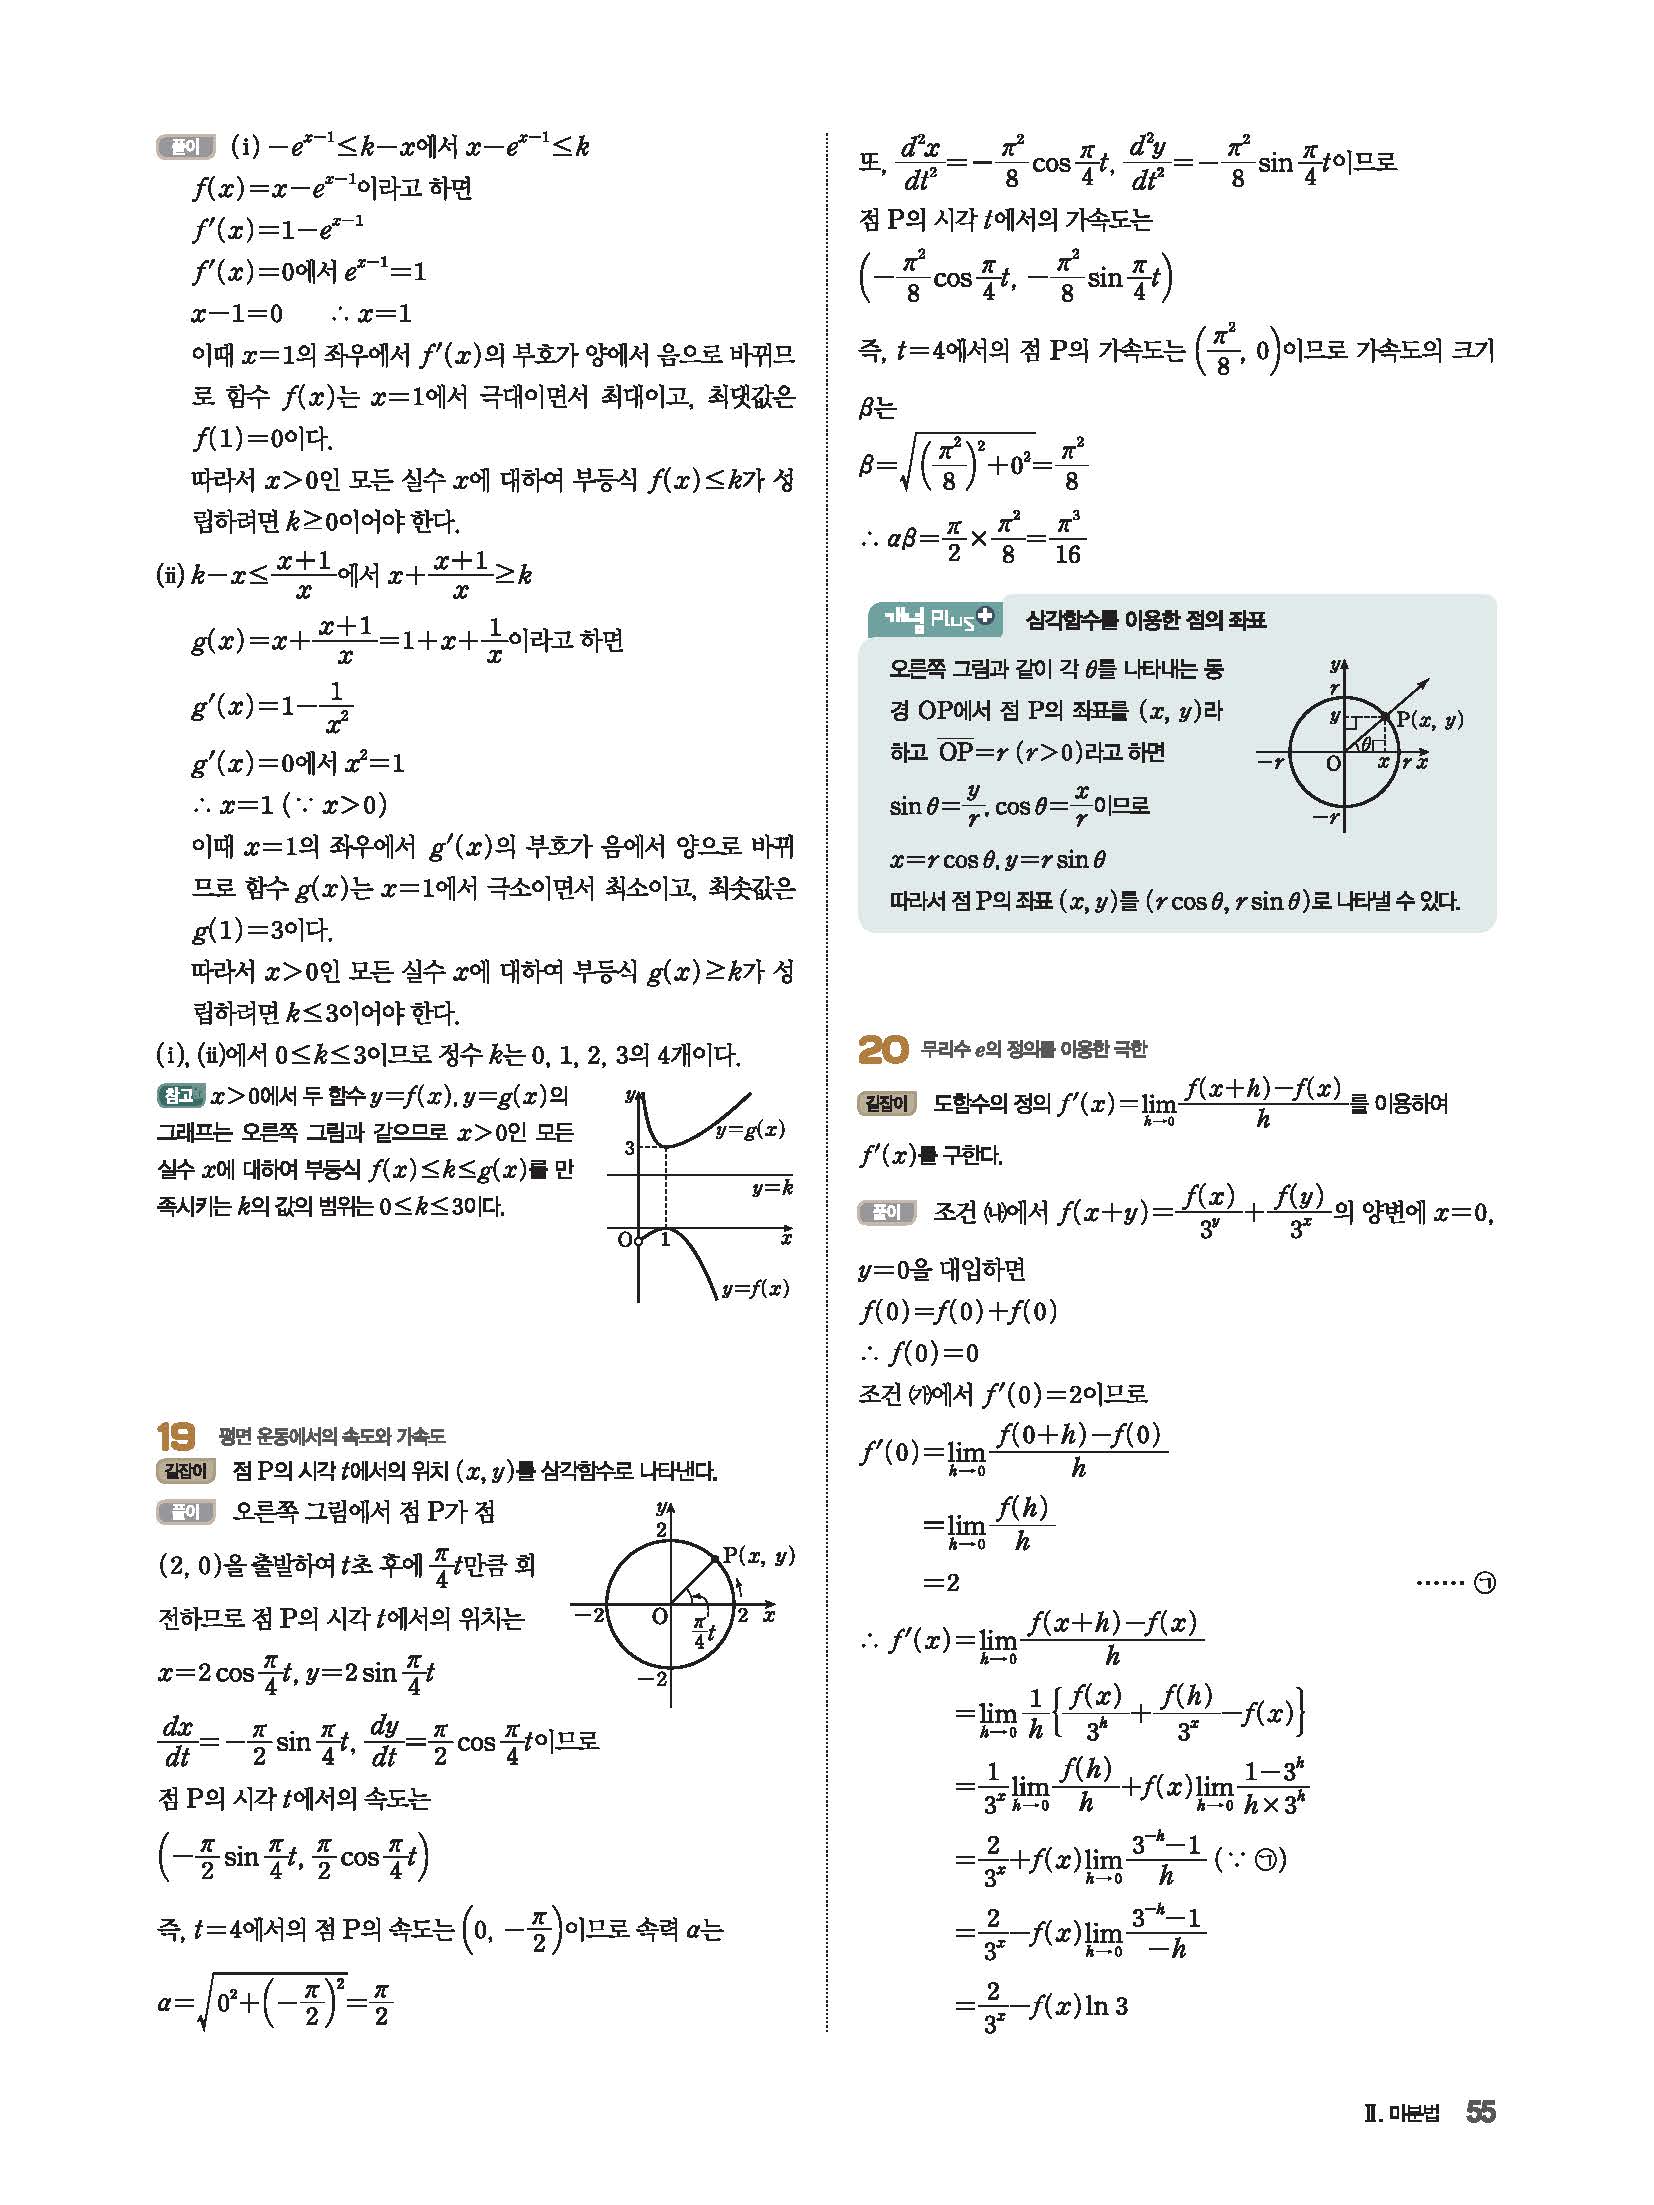 풀이 (ⅰ) −e^{x−1}≤k−x에서 x−e^{x−1}≤k
f(x)=x−e^{x−1}이라고 하면
f′(x)=1−e^{x−1}
f′(x)=0에서 e^{x−1}=1
x−1=0 ∴ x=1
이때 x=1의 좌우에서 f′(x)의 부호가 양에서 음으로 바뀌므
로 함수 f(x)는 x=1에서 극대이면서 최대이고, 최댓값은
f(1)=0이다.
따라서 x>0인 모든 실수 x에 대하여 부등식 f(x)≤k가 성
립하려면 k≥0이어야 한다.
(ⅱ) k−x≤\frac{x+1}{x}에서 x+\frac{x+1}{x}≥k
g(x)=x+\frac{x+1}{x}=1+x+\frac{1}{x}이라고 하면
g′(x)=1−\frac{1}{x^2}
g′(x)=0에서 x^2=1
∴ x=1 (∵ x>0)
이때 x=1의 좌우에서 g′(x)의 부호가 음에서 양으로 바뀌
므로 함수 g(x)는 x=1에서 극소이면서 최소이고, 최솟값은
g(1)=3이다.
따라서 x>0인 모든 실수 x에 대하여 부등식 g(x)≥k가 성
립하려면 k≤3이어야 한다.
(ⅰ), (ⅱ)에서 0≤k≤3이므로 정수 k는 0, 1, 2, 3의 4개이다.
참고 x>0에서 두 함수 y=f(x), y=g(x)의
그래프는 오른쪽 그림과 같으므로 x>0인 모든
실수 x에 대하여 부등식 f(x)≤k≤g(x)를 만
족시키는 k의 값의 범위는 0≤k≤3이다.
y
y=g(x)
3
y=k
O 1 x
y=f(x)
19 평면 운동에서의 속도와 가속도
길잡이 점 P의 시각 t에서의 위치 (x, y)를 삼각함수로 나타낸다.
풀이 오른쪽 그림에서 점 P가 점
(2, 0)을 출발하여 t초 후에 \frac{π}{4}t만큼 회
전하므로 점 P의 시각 t에서의 위치는
x=2 cos \frac{π}{4}t, y=2 sin \frac{π}{4}t
y
2
P(x, y)
−2 O 2 x
\frac{π}{4}t
−2
\frac{dx}{dt}=−\frac{π}{2} sin \frac{π}{4}t, \frac{dy}{dt}=\frac{π}{2} cos \frac{π}{4}t이므로
점 P의 시각 t에서의 속도는
(−\frac{π}{2} sin \frac{π}{4}t, \frac{π}{2} cos \frac{π}{4}t)
즉, t=4에서의 점 P의 속도는 (0, −\frac{π}{2})이므로 속력 α는
α=\sqrt{0^2+(−\frac{π}{2})^2}=\frac{π}{2}
또, \frac{d^2x}{dt^2}=−\frac{π^2}{8} cos \frac{π}{4}t, \frac{d^2y}{dt^2}=−\frac{π^2}{8} sin \frac{π}{4}t이므로
점 P의 시각 t에서의 가속도는
(−\frac{π^2}{8} cos \frac{π}{4}t, −\frac{π^2}{8} sin \frac{π}{4}t)
즉, t=4에서의 점 P의 가속도는 (\frac{π^2}{8}, 0)이므로 가속도의 크기
β는
β=\sqrt{(\frac{π^2}{8})^2+0^2}=\frac{π^2}{8}
∴ αβ=\frac{π}{2}×\frac{π^2}{8}=\frac{π^3}{16}
개념 Plus+ 삼각함수를 이용한 점의 좌표
오른쪽 그림과 같이 각 θ를 나타내는 동
경 OP에서 점 P의 좌표를 (x, y)라
하고 \overline{OP}=r (r>0)라고 하면
sin θ=\frac{y}{r}, cos θ=\frac{x}{r}이므로
x=r cos θ, y=r sin θ
따라서 점 P의 좌표 (x, y)를 (r cos θ, r sin θ)로 나타낼 수 있다.
y
r
y P(x, y)
θ
−r O x r x
−r
20 무리수 e의 정의를 이용한 극한
길잡이 도함수의 정의 f′(x)=\lim_{h→0}\frac{f(x+h)−f(x)}{h}를 이용하여
f′(x)를 구한다.
풀이 조건 ㈏에서 f(x+y)=\frac{f(x)}{3^y}+\frac{f(y)}{3^x}의 양변에 x=0,
y=0을 대입하면
f(0)=f(0)+f(0)
∴ f(0)=0
조건 ㈎에서 f′(0)=2이므로
f′(0)=\lim_{h→0}\frac{f(0+h)−f(0)}{h}
=\lim_{h→0}\frac{f(h)}{h}
=2 …… ㉠
∴ f′(x)=\lim_{h→0}\frac{f(x+h)−f(x)}{h}
=\lim_{h→0}\frac{1}{h}{\frac{f(x)}{3^h}+\frac{f(h)}{3^x}−f(x)}
=\frac{1}{3^x}\lim_{h→0}\frac{f(h)}{h}+f(x)\lim_{h→0}\frac{1−3^h}{h×3^h}
=\frac{2}{3^x}+f(x)\lim_{h→0}\frac{3^{−h}−1}{h} (∵ ㉠)
=\frac{2}{3^x}−f(x)\lim_{h→0}\frac{3^{−h}−1}{−h}
=\frac{2}{3^x}−f(x) ln 3
Ⅱ. 미분법 55